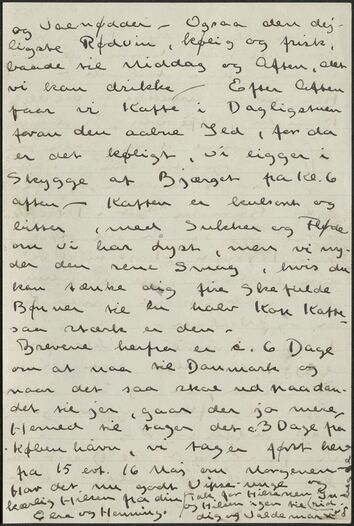 og Valnødder – Ogsaa den dej-
ligste Rødvin, kølig og frisk,
baade til Middag og Aften, det
vi kan drikke – Efter Aften
faar vi Kaffe i Dagligstuen
foran den aabne Ild, for da
er det køligt, vi ligger i
Skygge af Bjærget fra Kl. 6
aften – Kaffen er kulsort og
bitter, med Sukker og Fløde
om vi har Lyst, men vi ny-
der den rene Smag, hvis du
kan tænke dig fire Skefulde
Bønner til en halv Kop Kaffe
saa stærk er den –
Brevene herfra er c. 6 Dage
om at naa til Danmark og
naar det saa skal ud
det til jer, gaar der jo mere
Herned til tager det c. 3 Dage fra
København, vi tager først her
fra 15 evt. 16 Maj om Morgenen
Hav det nu godt og
kærlig Hilsen fra din
Elna og Henning.
Tak for Hilsenen
og Hilsningen til
dig og Valdemar